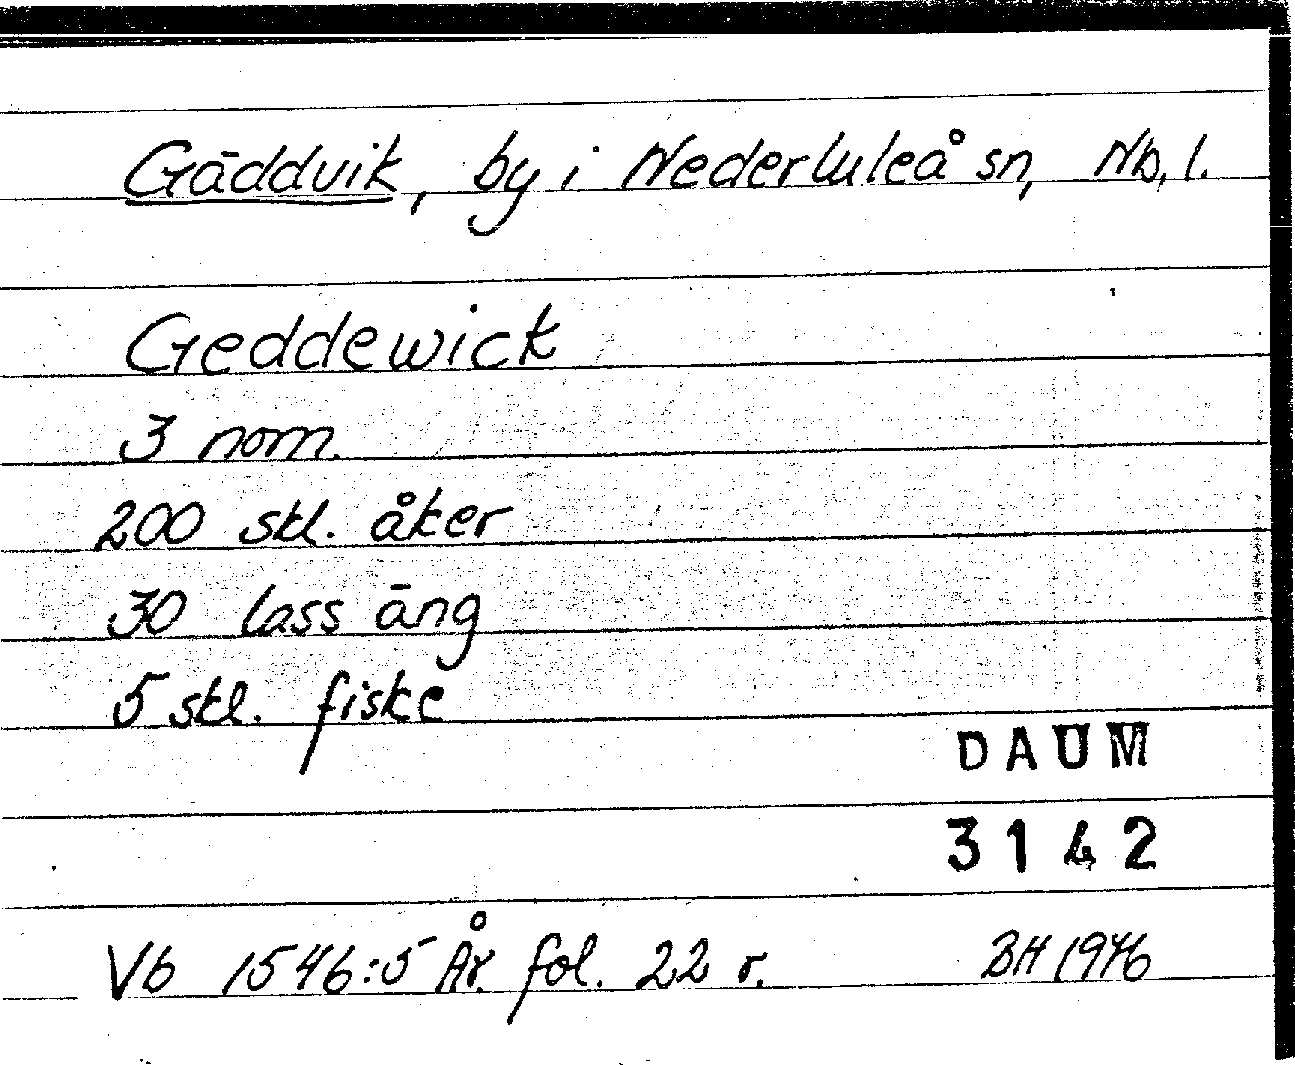 Gäddvik, by i Nederluleå sn, Nb, l.
Geddewick
3 nom.
200 skl. åker
30 lass äng
5 skl. fiske
DAUM
3142
Vb 1546:5 År. fol. 22 r. BH 1946